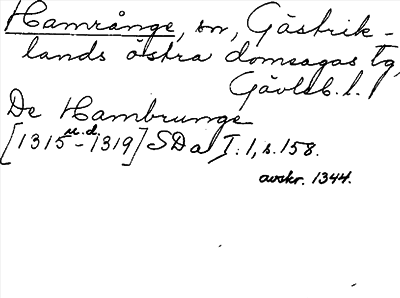 Hamrånge, sn, Gästrik-
lands östra domsagas tg,
Gävleb. l.
De Hambrunge
[1315 u.d. -1319] SDa I:1, s. 158.
avskr. 1344.